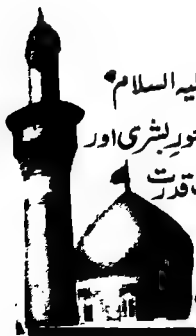 یہ السلام
ور بشری اور
قدرت